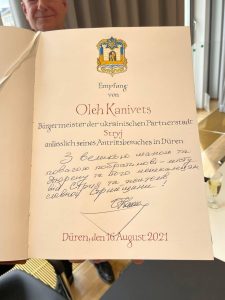 Empfang
von
Oleh Kanivets
Bürgermeister der ukrainischen Partnerstadt
Stryj
anlässlich seines Antrittsbesuches in Düren
З великою шаною та
повагою побратимові - місту
Дюрену та його мешканцям
від Стрия та
Düren, den 16 August 2021